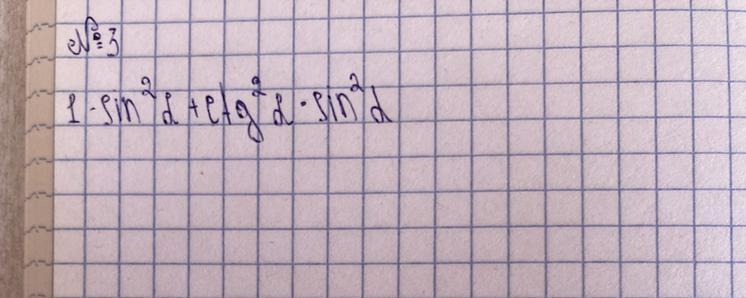 №3
1 - sin²α + ctg²α · sin²α